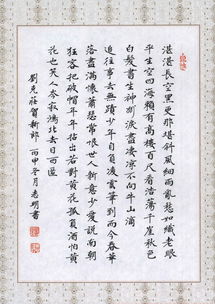 湛湛長空黑更那堪斜風細雨亂愁如織老眼
平生空四海賴有高樓百尺看浩蕩千崖秋色
白髮書生神州淚盡凄涼不向牛山滴
追往事去無蹟少年自負凌雲筆到而今春華
落盡滿懷蕭瑟常恨世人新意少愛說南朝
狂客把破帽年年拈出若對黄花孤負酒怕黄
花也笑人岑寂鴻北去日西匿
劉克莊賀新郎 丙申冬月志明書